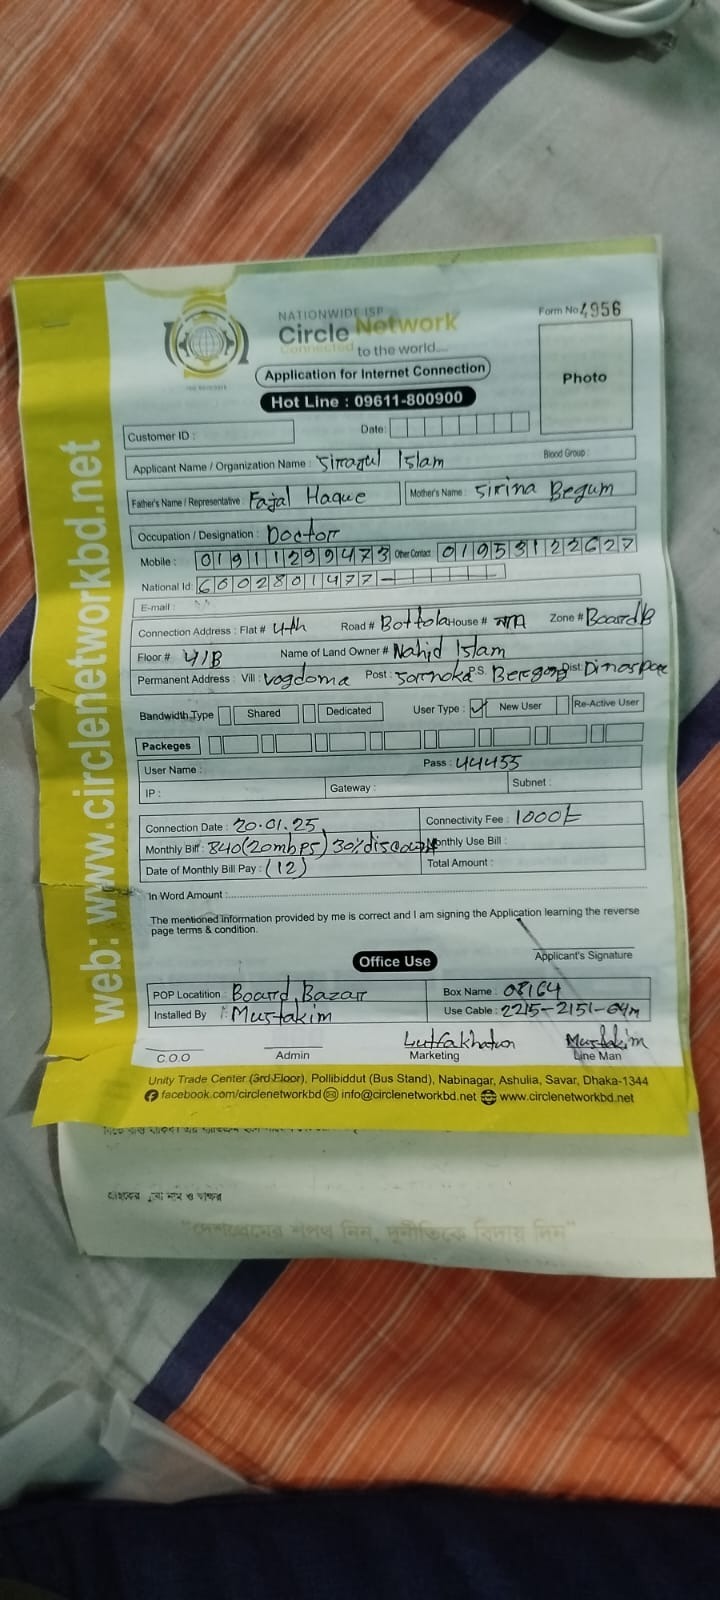 NATIONWIDE ISP
Circle Network
Connected to the world....
Form No 4956
Application for Internet Connection
Photo
Hot Line : 09611-800900
Customer ID :
Date:
Applicant Name / Organization Name : Sirrazul Islam
Blood Group :
Father's Name / Representative : Fajal Haque
Mother's Name : Sirina Begum
Occupation / Designation : Doctorr
Mobile : 01911299473 Other Contact 01953122627
National Id: 6002801477-
E-mail :
Connection Address : Flat # 4th Road # Bottola House # N/A Zone # Board B
Floor # 4/B Name of Land Owner # Nahid Islam
Permanent Address : Vill: Vogdoma Post : P.S. Dist:
Bandwidth Type Shared Dedicated User Type : New User Re-Active User
Packeges
User Name : Pass : 44455
IP : Gateway : Subnet :
Connection Date : 20.01.25 Connectivity Fee : 1000/=
Monthly Bill : 840(20mbps) 30% discount Monthly Use Bill :
Date of Monthly Bill Pay : (12) Total Amount :
In Word Amount :
The mentioned information provided by me is correct and I am signing the Application learning the reverse
page terms & condition.
Applicant's Signature
Office Use
POP Locatition : Board Bazar Box Name : 08164
Installed By : Mustakim Use Cable : 2215-2151-64m
Lutfa khatun Mustakim
C.O.O Admin Marketing Line Man
Unity Trade Center (3rd Floor), Pollibiddut (Bus Stand), Nabinagar, Ashulia, Savar, Dhaka-1344
facebook.com/circlenetworkbd info@circlenetworkbd.net www.circlenetworkbd.net
web: www.circlenetworkbd.net
নাম ও স্বাক্ষর
"দেশপ্রেমের শপথ নিন, দুর্নীতিকে বিদায় দিন"